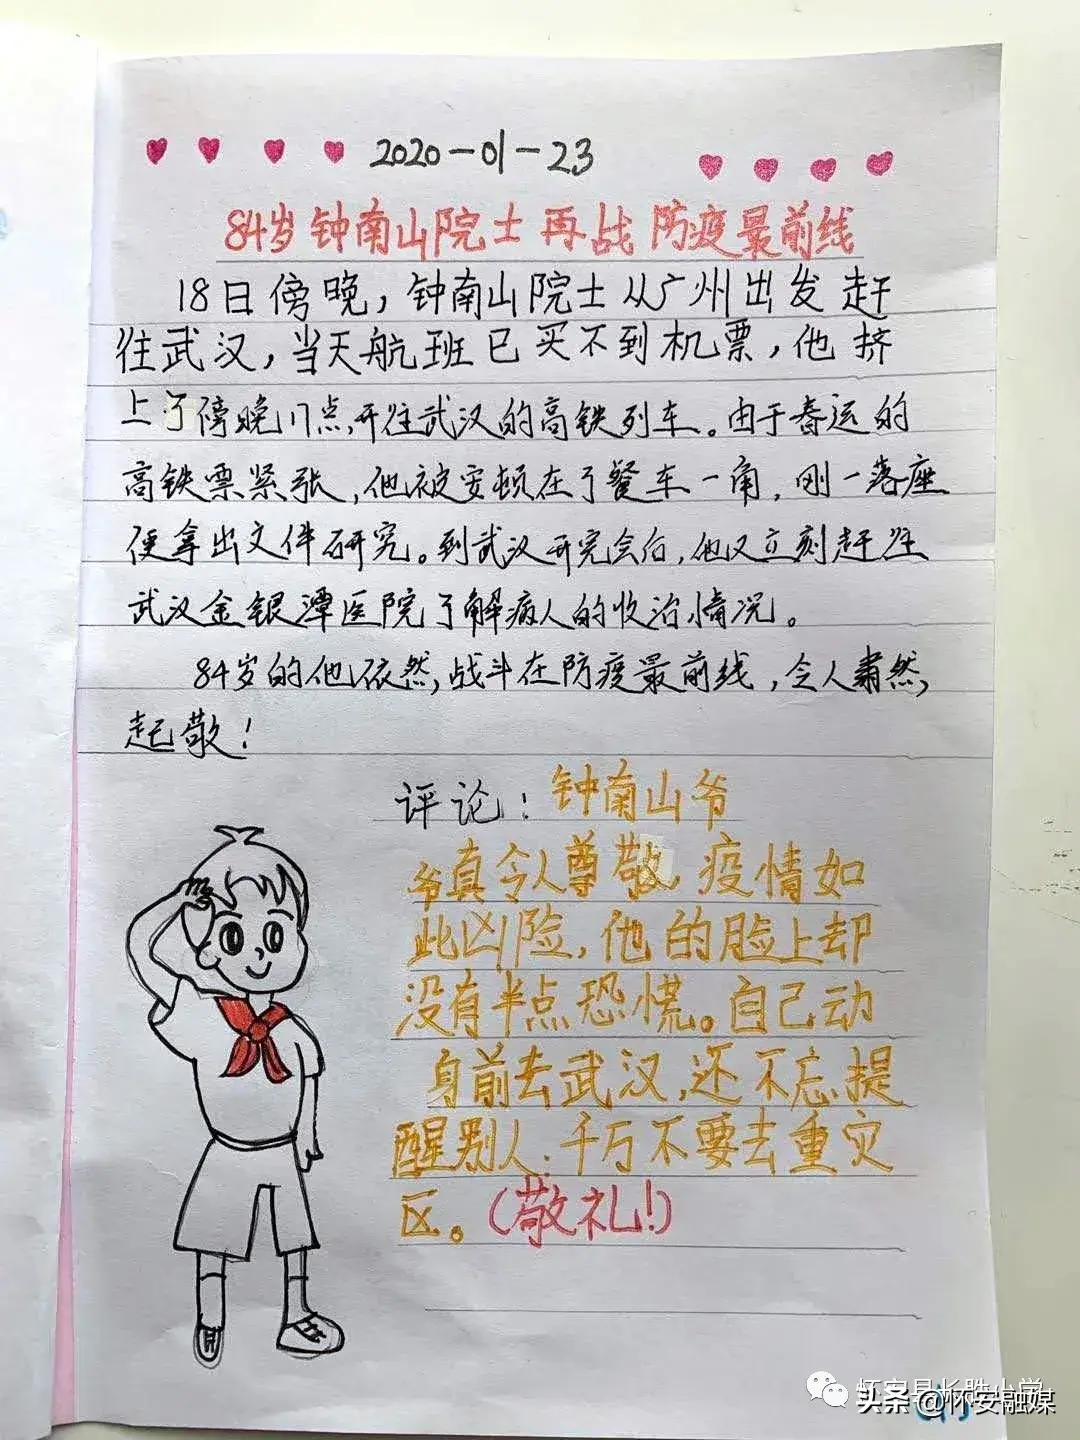 2020-01-23
84岁钟南山院士再战防疫最前线
18日傍晚，钟南山院士从广州出发赶
往武汉，当天航班已买不到机票，他挤
上了傍晚17点开往武汉的高铁列车。由于春运的
高铁票紧张，他被安顿在了餐车一角，刚一落座
便拿出文件研究。到武汉开完会后，他又立刻赶往
武汉金银潭医院了解病人的收治情况。
84岁的他依然，战斗在防疫最前线，令人肃然，
起敬！
评论：钟南山爷
爷真令人尊敬，疫情如
此凶险，他的脸上却
没有半点恐慌。自己动
身前去武汉，还不忘提
醒别人：千万不要去重灾
区。（敬礼！）
怀安县长胜小学
头条@怀安融媒